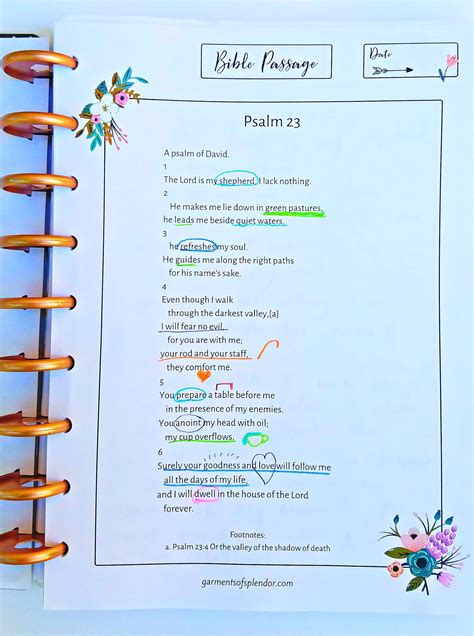 Bible Passage
Date
Psalm 23
A psalm of David.
1
The Lord is my shepherd, I lack nothing.
2
He makes me lie down in green pastures,
he leads me beside quiet waters,
3
he refreshes my soul.
He guides me along the right paths
for his name's sake.
4
Even though I walk
through the darkest valley,[a]
I will fear no evil,
for you are with me;
your rod and your staff,
they comfort me.
5
You prepare a table before me
in the presence of my enemies.
You anoint my head with oil;
my cup overflows.
6
Surely your goodness and love will follow me
all the days of my life,
and I will dwell in the house of the Lord
forever.
Footnotes:
a. Psalm 23:4 Or the valley of the shadow of death
garmentsofsplendor.com